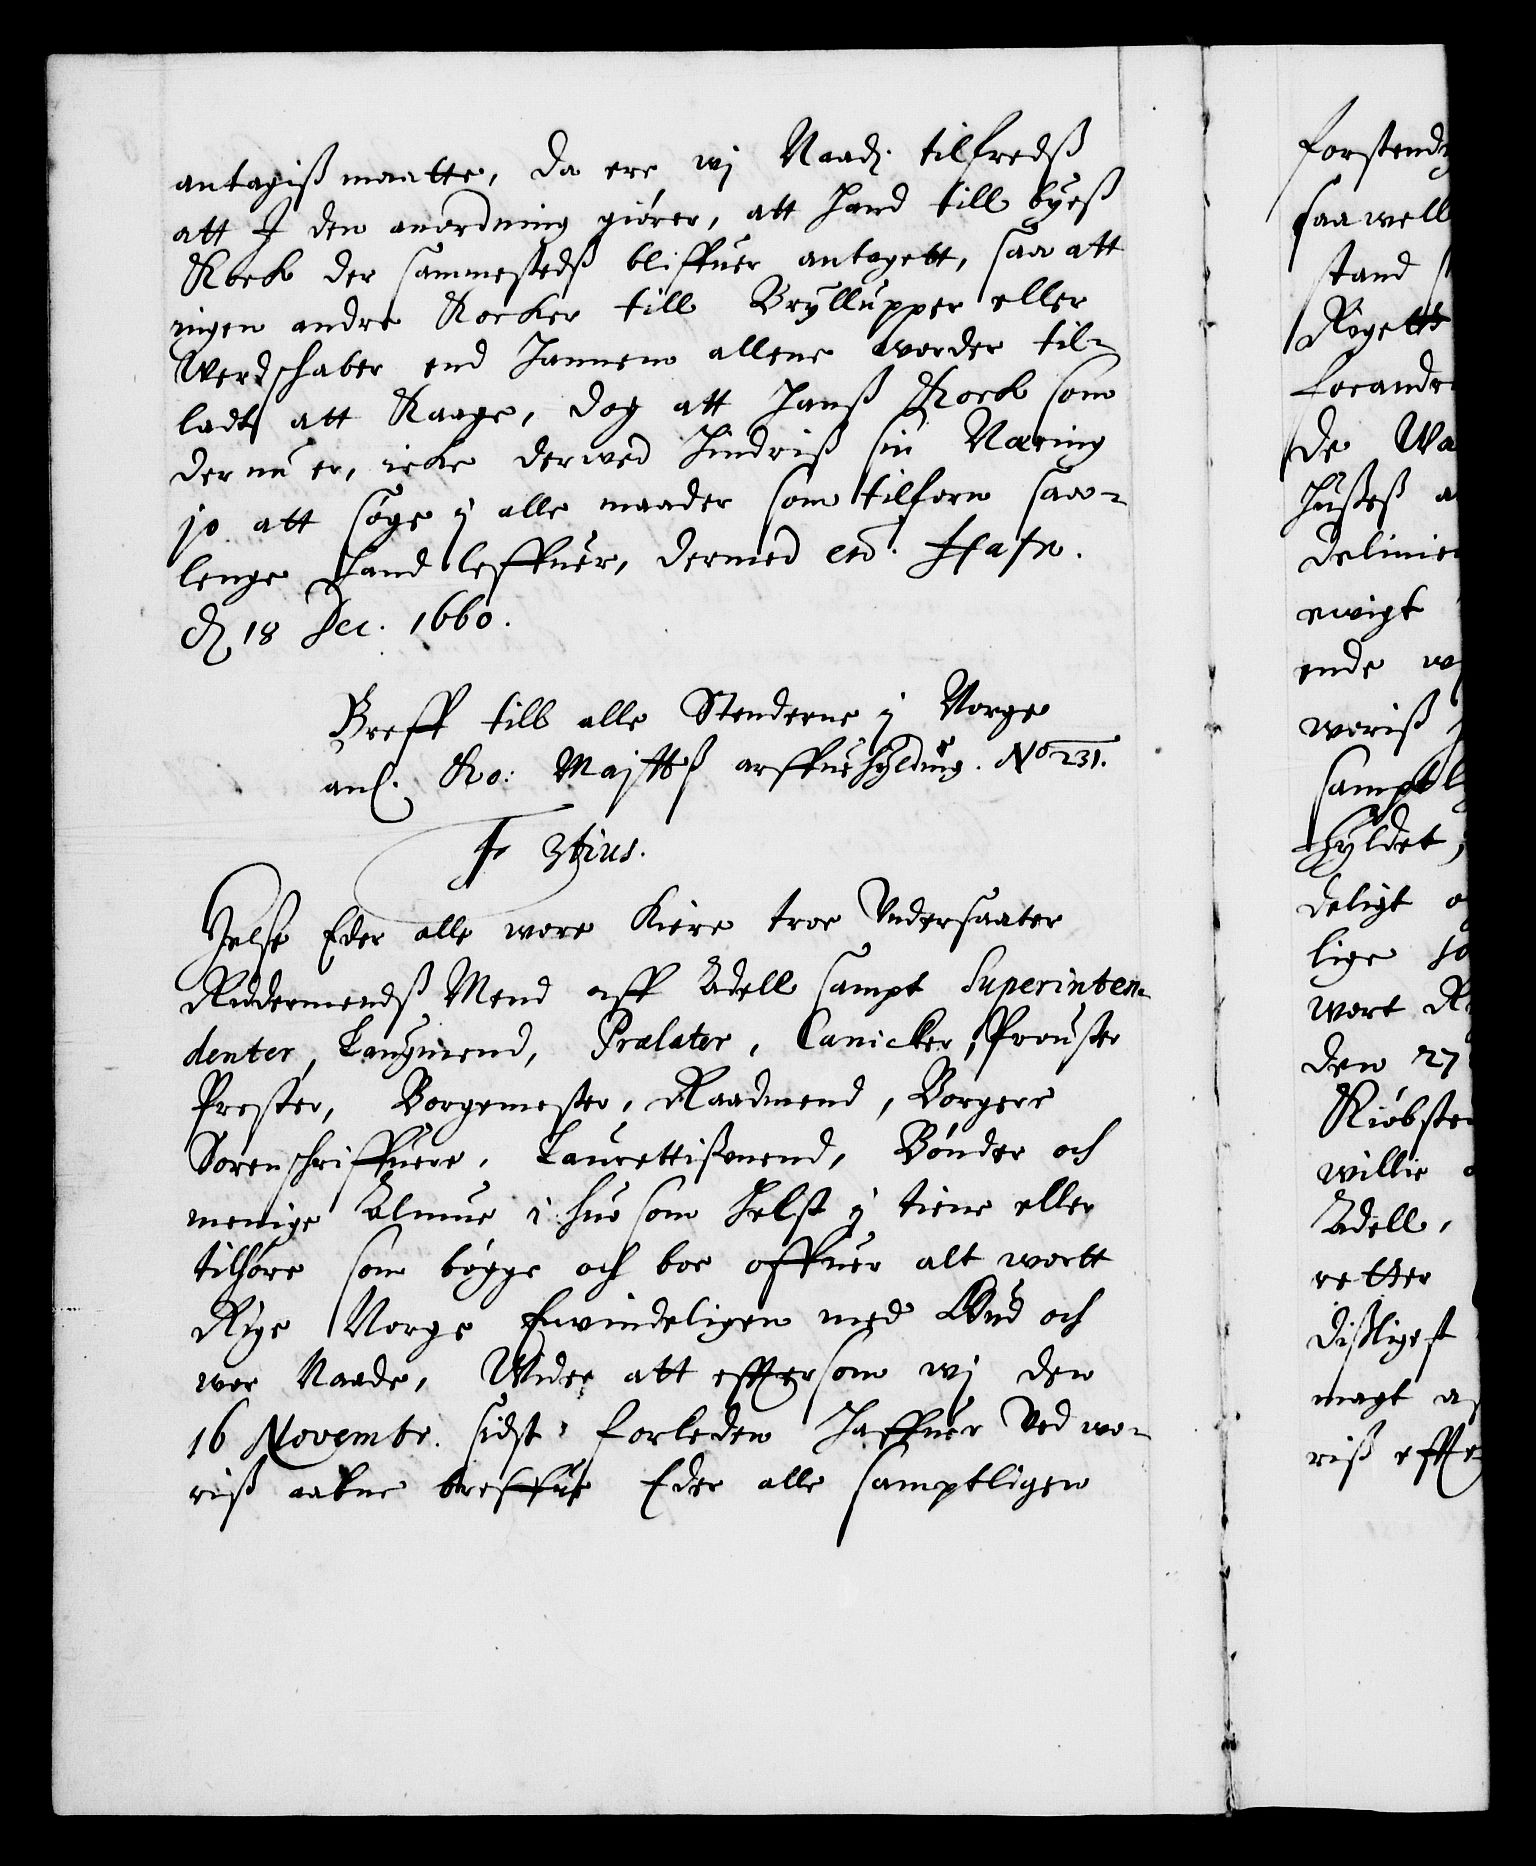 antagiß maatte, da ere wj Naadj. tilfredß
att J den anordning giører, att Hand till byeß
Kock der sammestedß bliffuer antagett, saa att
ingen andre Kocker till Bryllupper eller
Werdschaber end Hannem allene worder til-
ladt att Kaage, dog att Hanß Kock som
der nu er, icke derwed Hindriß sin Næring
jo att søge j alle maader som tilforn saa-
lenge Hand leffuer, dermed etc. Hafn.
dj 18 Dec. 1660.
Breff till alle Stenderne j Norge
anl. Ko: Majttß arffue hylding. No 231.
F 3tius.
Helse Eder alle wore Kiere troe Undersaater
Riddermendß Mend aff Adell sampt Superinten-
denter, Laugmend, Prælater, Canicker, Prouster
Prester, Borgemester, Raadmend, Borgere
Sorenschriffuere, Laurettißmend, Bønder och
menige Almue i huo som Helst j tiene eller
tilhøre som bygge och boe offuer alt wortt
Rige Norge Ewindeligen med Gud och
wor Naade, Wider att effterson wj den
16 Novembr. sidst forleden Haffuer Ved wo-
riß aabne breffue Eder alle samptligen
forstend
saa well
stand
Rigetts
forandr
de Wa
Hußeß
delinie
ewigt
ende w
weriß
sampt
hyldet,
deligt
lige
wort
den 27
Kiøbste
willie
Adell,
retter
dißligest
magt
riß effte